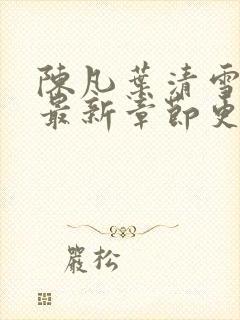 陳凡葉清雪
最新章節更
嚴松